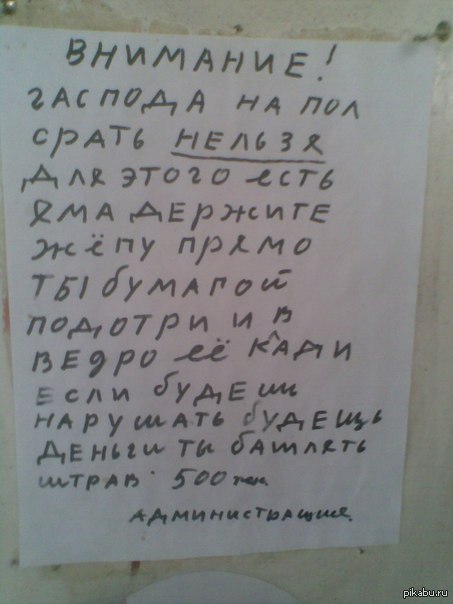 ВНИМАНИЕ!
ГАСПОДА НА ПОЛ
СРАТЬ НЕЛЬЗЯ
ДЛЯ ЭТОГО ЕСТЬ
ЯМА ДЕРЖИТЕ
ЖЁПУ ПРЯМО
ТЫ БУМАГОЙ
ПОДОТРИ И В
ВЕДРО ЕЁ КАДИ
ЕСЛИ БУДЕШ
НАРУШАТЬ БУДЕЩЬ
ДЕНЬГИ ТЫ БАШЛЯТЬ
ШТРАВ 500
АДМИНИСТРАЦИЯ
pikabu.ru